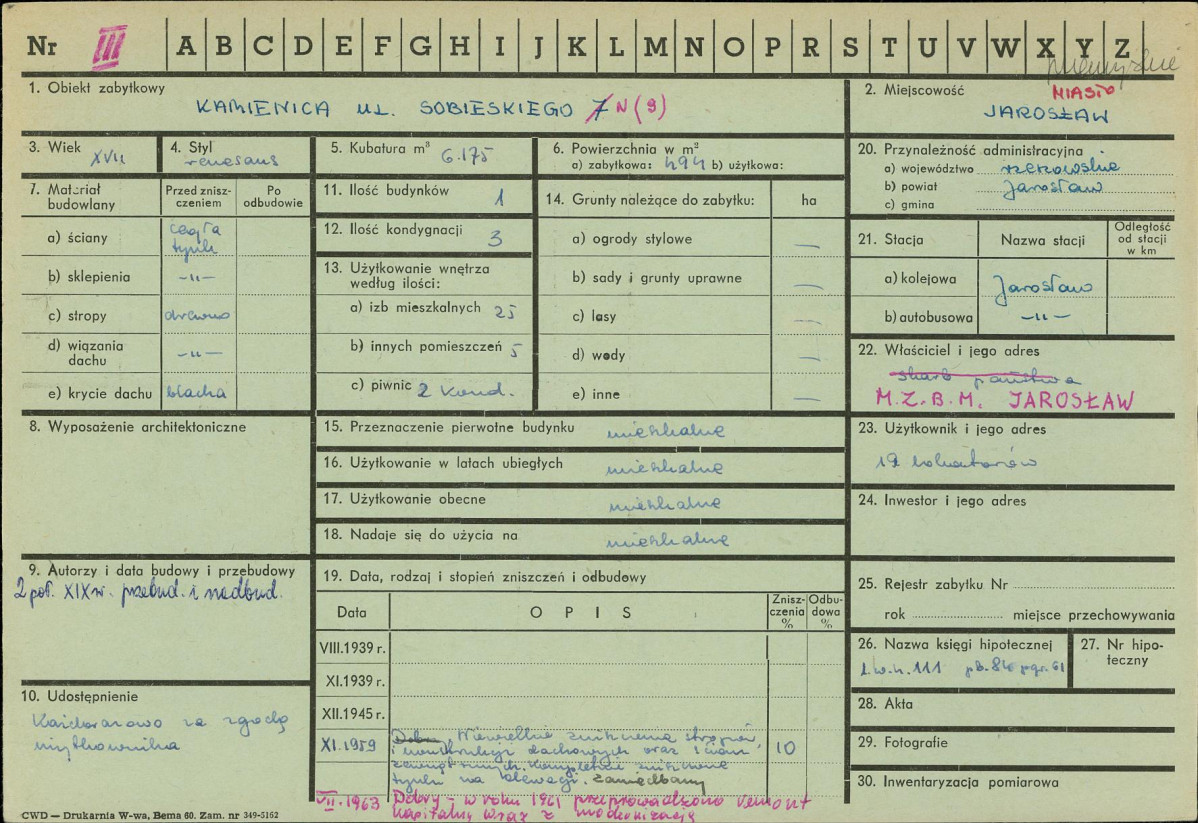 Nr III A B C D E F G H I J K L M N O P R S T U V W X Y Z
przemyskie
1. Obiekt zabytkowy
KAMIENICA ul. SOBIESKIEGO 7 N (9)
2. Miejscowość MIASTO
JAROSŁAW
3. Wiek XVII
4. Styl renesans
5. Kubatura m³ 6.175
6. Powierzchnia w m²
a) zabytkowa: 494 b) użytkowa:
7. Materiał budowlany
Przed zniszczeniem
Po odbudowie
a) ściany cegła tynk
b) sklepienia —„—
c) stropy drewno
d) wiązania dachu —„—
e) krycie dachu blacha
8. Wyposażenie architektoniczne
9. Autorzy i data budowy i przebudowy
2 poł. XIX w. przebud. i nadbud.
10. Udostępnienie
Każdorazowo za zgodą
użytkownika
11. Ilość budynków 1
12. Ilość kondygnacji 3
13. Użytkowanie wnętrza
według ilości:
a) izb mieszkalnych 25
b) innych pomieszczeń 5
c) piwnic 2 kond.
14. Grunty należące do zabytku: ha
a) ogrody stylowe —
b) sady i grunty uprawne —
c) lasy —
d) wody —
e) inne —
15. Przeznaczenie pierwotne budynku mieszkalne
16. Użytkowanie w latach ubiegłych mieszkalne
17. Użytkowanie obecne mieszkalne
18. Nadaje się do użycia na mieszkalne
19. Data, rodzaj i stopień zniszczeń i odbudowy
Data O P I S Zniszczenia % Odbudowa %
VIII.1939 r.
XI.1939 r.
XII.1945 r.
XI.1959 Dobry, Niewielkie zniszczenia stropów 10
i konstrukcji dachowych oraz ścian
zewnętrznych. Kompletnie zniszczone
tynki na elewacji. Zaniedbany
VII.1963 Dobry – w roku 1961 przeprowadzono remont
kapitalny wraz z modernizacją
20. Przynależność administracyjna
a) województwo rzeszowskie
b) powiat Jarosław
c) gmina
21. Stacja Nazwa stacji Odległość od stacji w km
a) kolejowa Jarosław
b) autobusowa —„—
22. Właściciel i jego adres
skarb państwa
M.Z.B.M. JAROSŁAW
23. Użytkownik i jego adres
19 lokatorów
24. Inwestor i jego adres
25. Rejestr zabytku Nr
rok miejsce przechowywania
26. Nazwa księgi hipotecznej
l.w.h. 111
27. Nr hipoteczny
28. Akta
29. Fotografie
30. Inwentaryzacja pomiarowa
CWD — Drukarnia W-wa, Bema 60. Zam. nr 349-5162